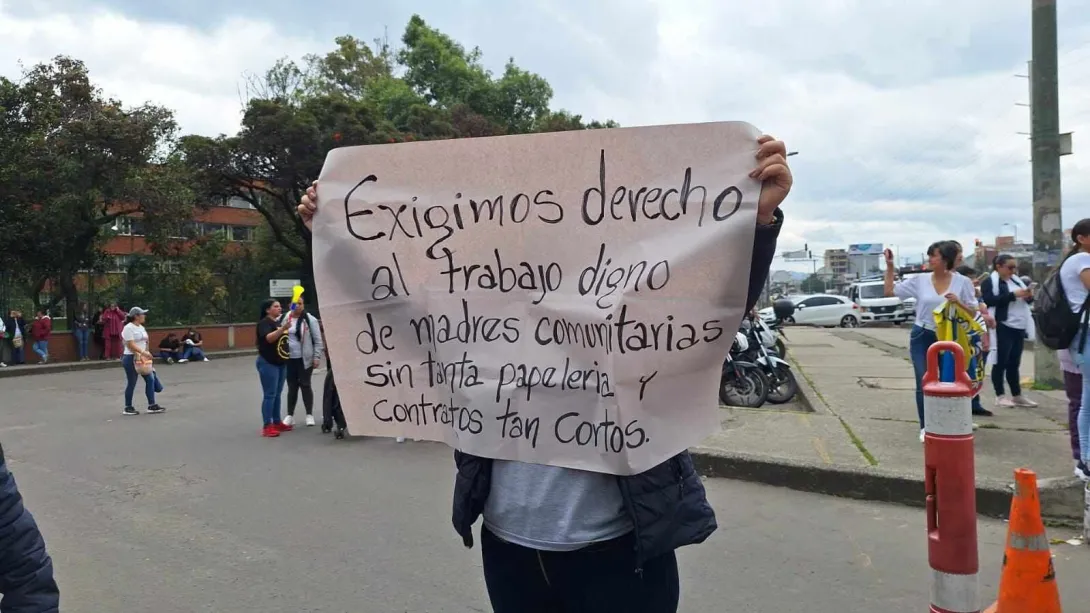 Exigimos derecho
al trabajo digno
de madres comunitarias
sin tanta papeleria y
contratos tan cortos.